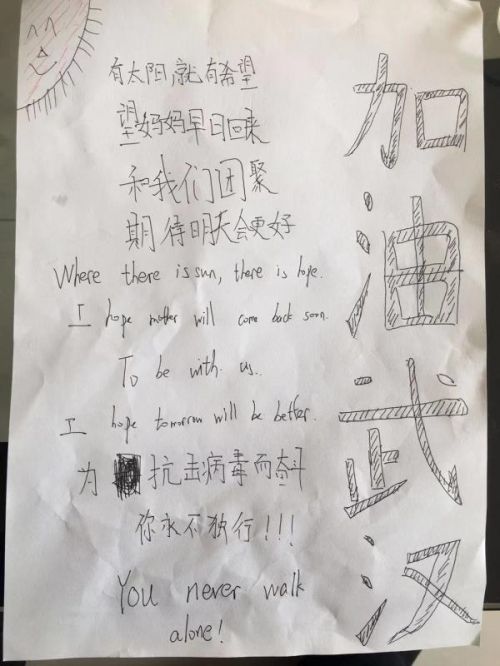 有太阳,就有希望
望妈妈早日回来
和我们团聚
期待明天会更好
Where there is sun, there is hope.
I hope mother will come back soon.
To be with us..
I hope tomorrow will be better.
为 抗击病毒而奋斗
你永不独行!!!
You never walk
alone!
加油武汉